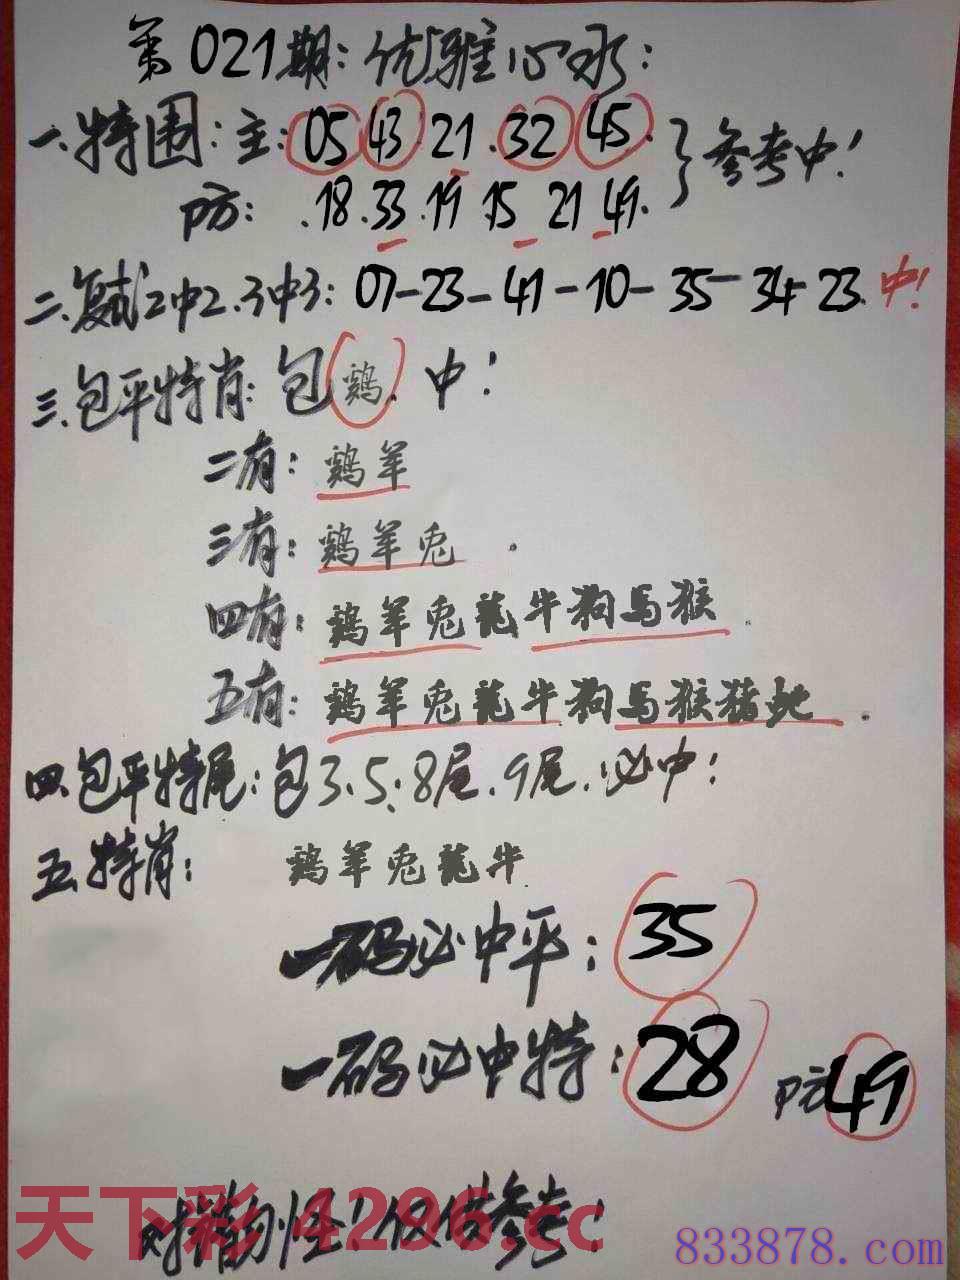 第021期:优雅心水:
一.特围:主:05 43 21.32 45.
防:.18.33.19.15 21 49.
参考中!
二.复式2中2.3中3:07-23-41-10-35-34-23.中!
三.包平特肖:包鸡.中!
二有:鸡羊
三有:鸡羊兔.
四有:鸡羊兔龍牛狗馬猴.
五有:鸡羊兔龍牛狗馬猴豬蛇.
四.包平特尾:包3.5:8尾.9尾.必中!
五.特肖:鸡羊兔龍牛
一码必中平:35
一码必中特:28 防49
天下彩 4296.cc
错勿怪!仅供参考!
833878.com